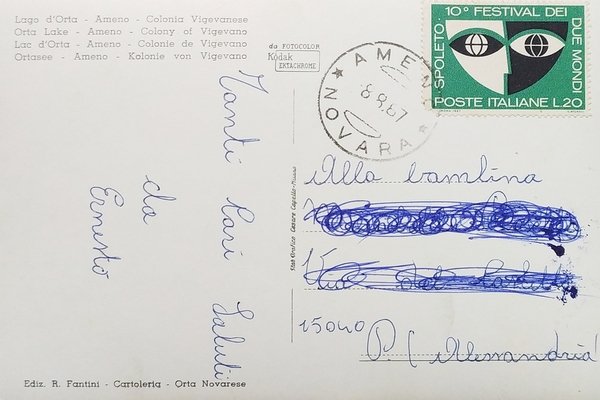 Lago d'Orta - Ameno - Colonia Vigevanese
Orta Lake - Ameno - Colony of Vigevano
Lac d'Orta - Ameno - Colonie de Vigevano
Ortasee - Ameno - Kolonie von Vigevano
da FOTOCOLOR
Kodak
EKTACHROME
AMENO
8.9.67
NOVARA
SPOLETO - 10° FESTIVAL DEI DUE MONDI
POSTE ITALIANE L.20
Tanti Cari Saluti
da
Ernesto
Stab. Grafico Cesare Capello - Milano
Alla bambina
Via
15040
P. (Alessandria)
Ediz. R. Fantini - Cartoleria - Orta Novarese